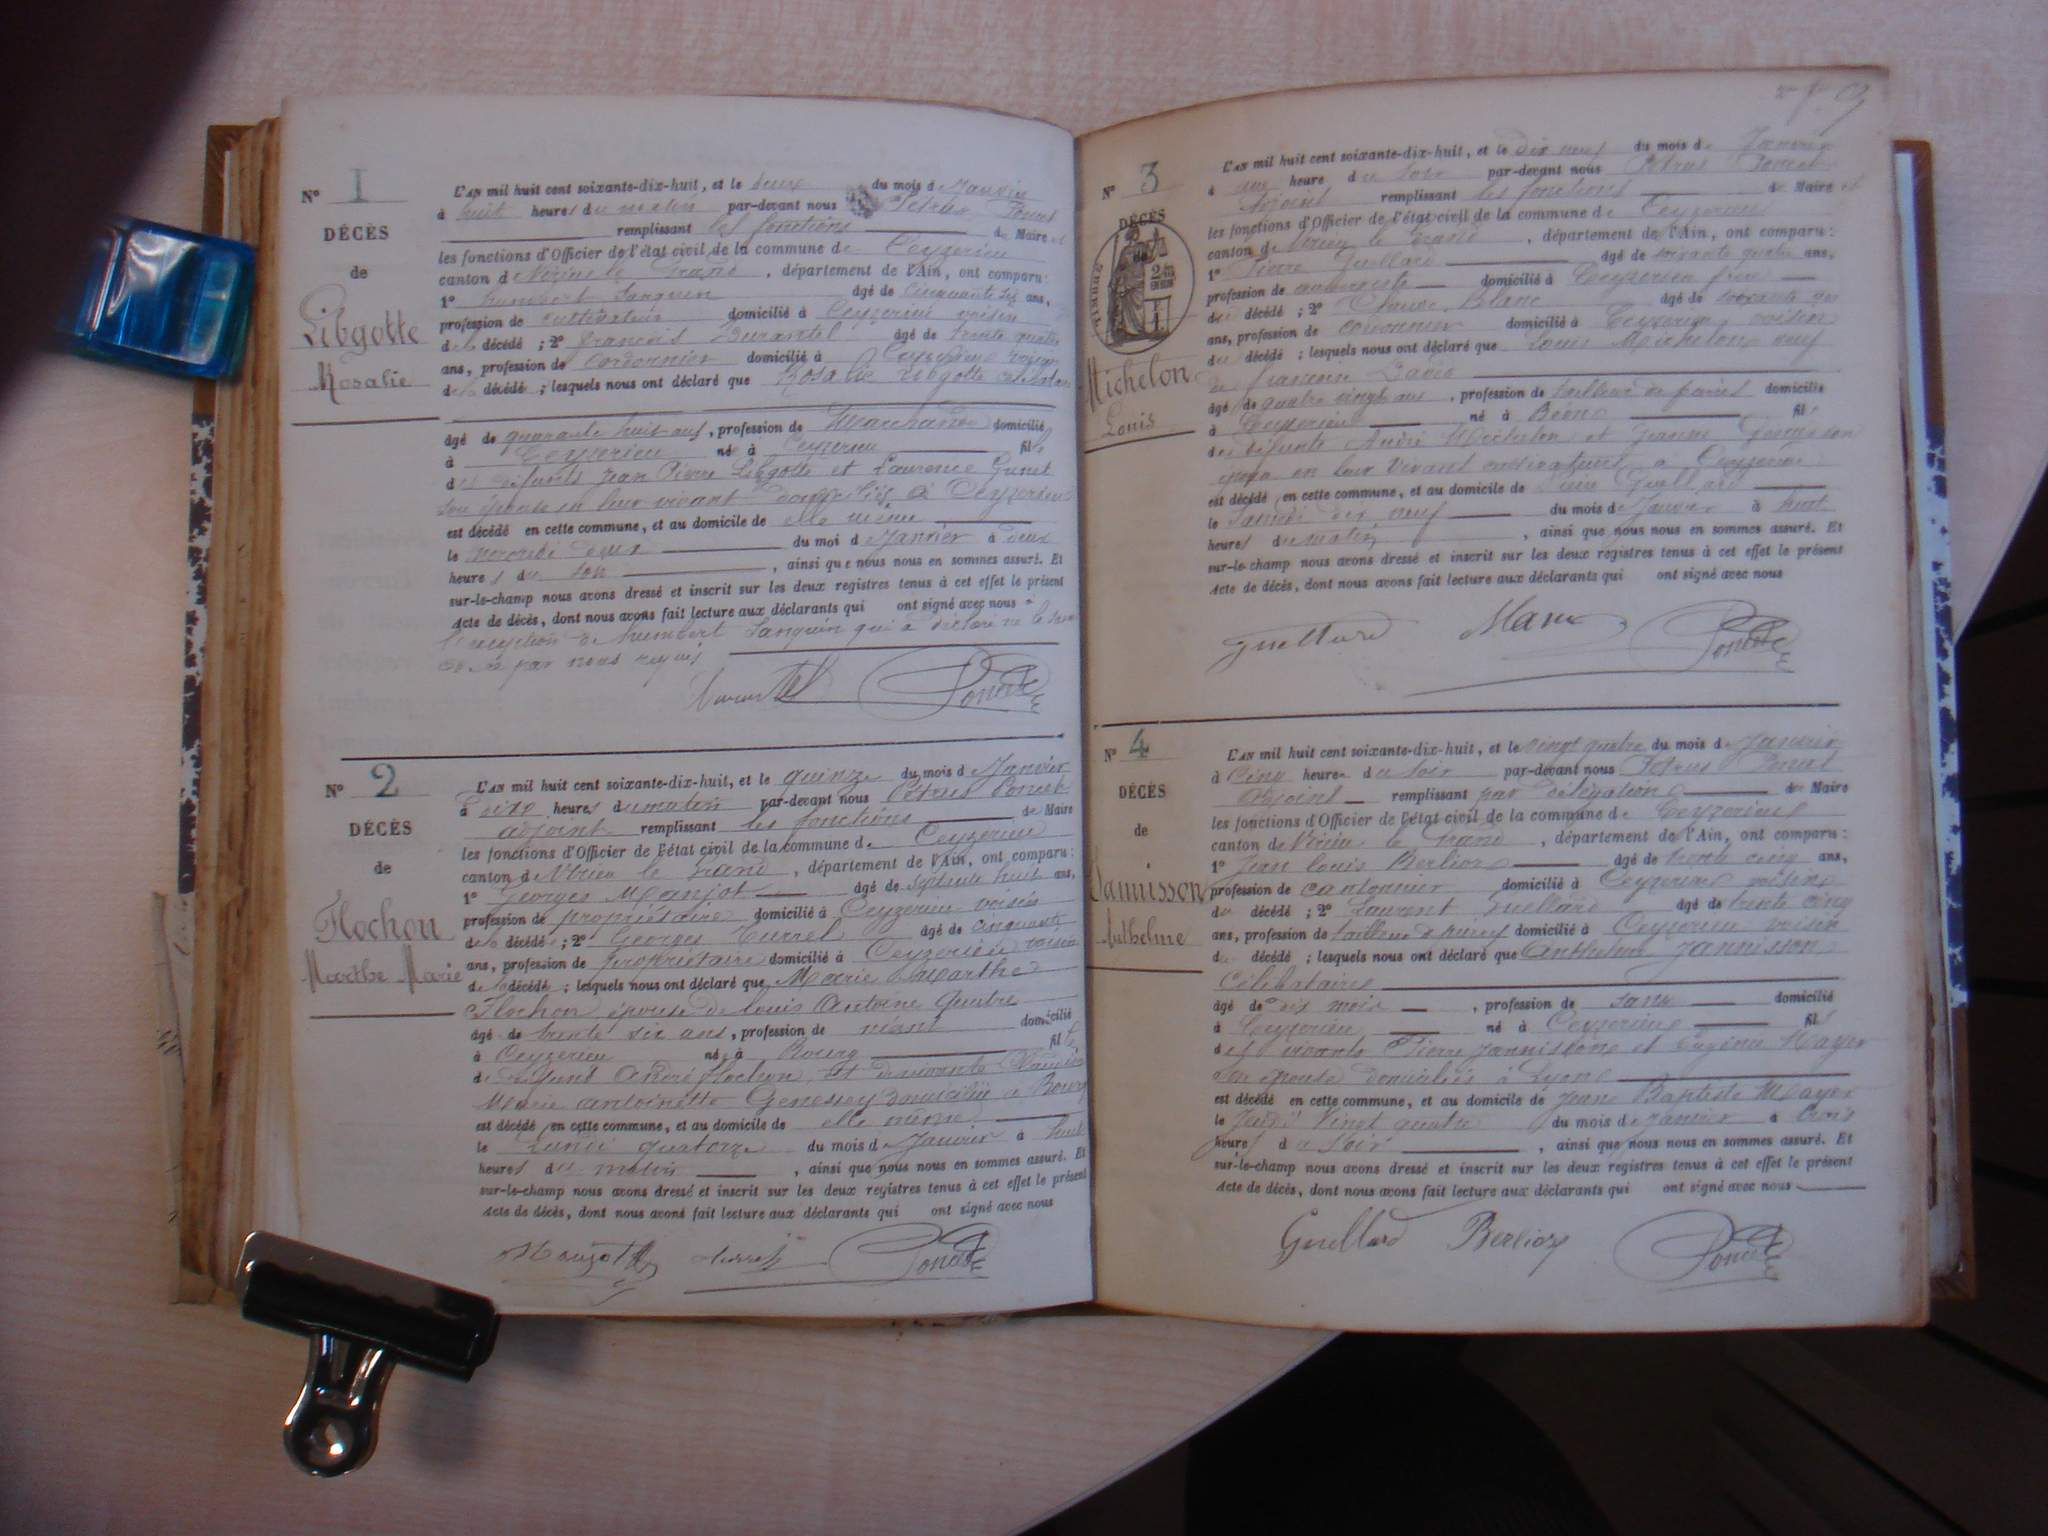 N° 1
DÉCÈS
de
Libgotte
Rosalie
L'AN mil huit cent soixante-dix-huit, et le deux du mois de Janvier
à huit heures du matin par-devant nous Petrus Poncet
remplissant les fonctions de Maire et
les fonctions d'Officier de l'état civil de la commune de Ceyzerieu
canton de Virieu le Grand, département de l'Ain, ont comparu:
1° humbert Sanquin âgé de cinquante six ans,
profession de cultivateur domicilié à Ceyzerieu voisin
de la décédé; 2° françois Durantel âgé de trente quatre
ans, profession de Cordonnier domicilié à Ceyzerieu voisin
de la décédé; lesquels nous ont déclaré que Rosalie Libgotte célibataire
âgé de quarante huit ans, profession de Marchande domicilié
à Ceyzerieu né à Ceyzerieu fille
des défunts Jean Pierre Libgotte et Laurence
son épouse en leur vivant domiciliés à Ceyzerieu
est décédé en cette commune, et au domicile de elle même
le mercredi deux du moi de Janvier à deux
heures du ainsi que nous nous en sommes assuré. Et
sur-le-champ nous avons dressé et inscrit sur les deux registres tenus à cet effet le présent
Acte de décès, dont nous avons fait lecture aux déclarants qui ont signé avec nous à
l'exception de humbert Sanquin qui a déclaré ne le savoir
de ce par nous requis
Durantel Poncet
N° 2
DÉCÈS
de
Flochon
Marthe Marie
L'AN mil huit cent soixante-dix-huit, et le quinze du mois de Janvier
à heures du matin par-devant nous Petrus Poncet
adjoint remplissant les fonctions de Maire
les fonctions d'Officier de l'état civil de la commune de Ceyzerieu
canton de Virieu le Grand, département de l'Ain, ont comparu:
1° Georges Manjot âgé de septante huit ans,
profession de propriétaire domicilié à Ceyzerieu voisin
de la décédé; 2° Georges Turrel âgé de cinquante
ans, profession de propriétaire domicilié à Ceyzerieu voisin
de la décédé; lesquels nous ont déclaré que Marie Marthe
Flochon épouse de louis Antoine
âgé de trente six ans, profession de néant domicilié
à Ceyzerieu né à Bourg fille
de défunt André Flochon et de vivante Claudine
Marie antoinette Genessey domiciliée à Bourg
est décédé en cette commune, et au domicile de elle même
le Lundi quatorze du mois de Janvier à huit
heures du matin, ainsi que nous nous en sommes assuré. Et
sur-le-champ nous avons dressé et inscrit sur les deux registres tenus à cet effet le présent
Acte de décès, dont nous avons fait lecture aux déclarants qui ont signé avec nous
Poncet
N° 3
DÉCÈS
TIMBRE
Michelon
Louis
L'AN mil huit cent soixante-dix-huit, et le dix neuf du mois de Janvier
à une heure du soir par-devant nous Petrus Poncet
Adjoint remplissant les fonctions de Maire et
les fonctions d'Officier de l'état civil de la commune de Ceyzerieu
canton de Virieu le Grand, département de l'Ain, ont comparu:
1° Pierre Guillard âgé de soixante quatre ans,
profession de domicilié à Ceyzerieu
du décédé; 2° Blanc âgé de soixante
ans, profession de domicilié à Ceyzerieu voisin
du décédé; lesquels nous ont déclaré que Louis Michelon veuf
de françoise David
âgé de quatre vingt ans, profession de tailleur de pierres domicilié
à Ceyzerieu né à Béon fils
des défunts André Michelon et Jeanne
en leur vivant cultivateurs à Ceyzerieu
est décédé en cette commune, et au domicile de Guillard
le Samedi dix neuf du mois de Janvier à huit
heures du matin, ainsi que nous nous en sommes assuré. Et
sur-le-champ nous avons dressé et inscrit sur les deux registres tenus à cet effet le présent
Acte de décès, dont nous avons fait lecture aux déclarants qui ont signé avec nous
Guillard Poncet
N° 4
DÉCÈS
de
Jannisson
Anthelme
L'AN mil huit cent soixante-dix-huit, et le vingt quatre du mois de Janvier
à Cinq heures du soir par-devant nous Petrus Poncet
adjoint remplissant par délégation de Maire
les fonctions d'Officier de l'état civil de la commune de Ceyzerieu
canton de Virieu le Grand, département de l'Ain, ont comparu:
1° Jean louis Berlioz âgé de trente cinq ans,
profession de cantonnier domicilié à Ceyzerieu voisin
du décédé; 2° Laurent Guillard âgé de trente cinq
ans, profession de tailleur de pierres domicilié à Ceyzerieu voisin
du décédé; lesquels nous ont déclaré que Anthelme Jannisson
Célibataire
âgé de dix mois, profession de sans domicilié
à Ceyzerieu né à Ceyzerieu fils
des vivants Pierre Jannisson et Eugénie Mayer
son épouse domiciliés à Lyon
est décédé en cette commune, et au domicile de Jean Baptiste Mayer
le Jeudi Vingt quatre du mois de Janvier à trois
heures du soir, ainsi que nous nous en sommes assuré. Et
sur-le-champ nous avons dressé et inscrit sur les deux registres tenus à cet effet le présent
Acte de décès, dont nous avons fait lecture aux déclarants qui ont signé avec nous
Guillard Berlioz Poncet